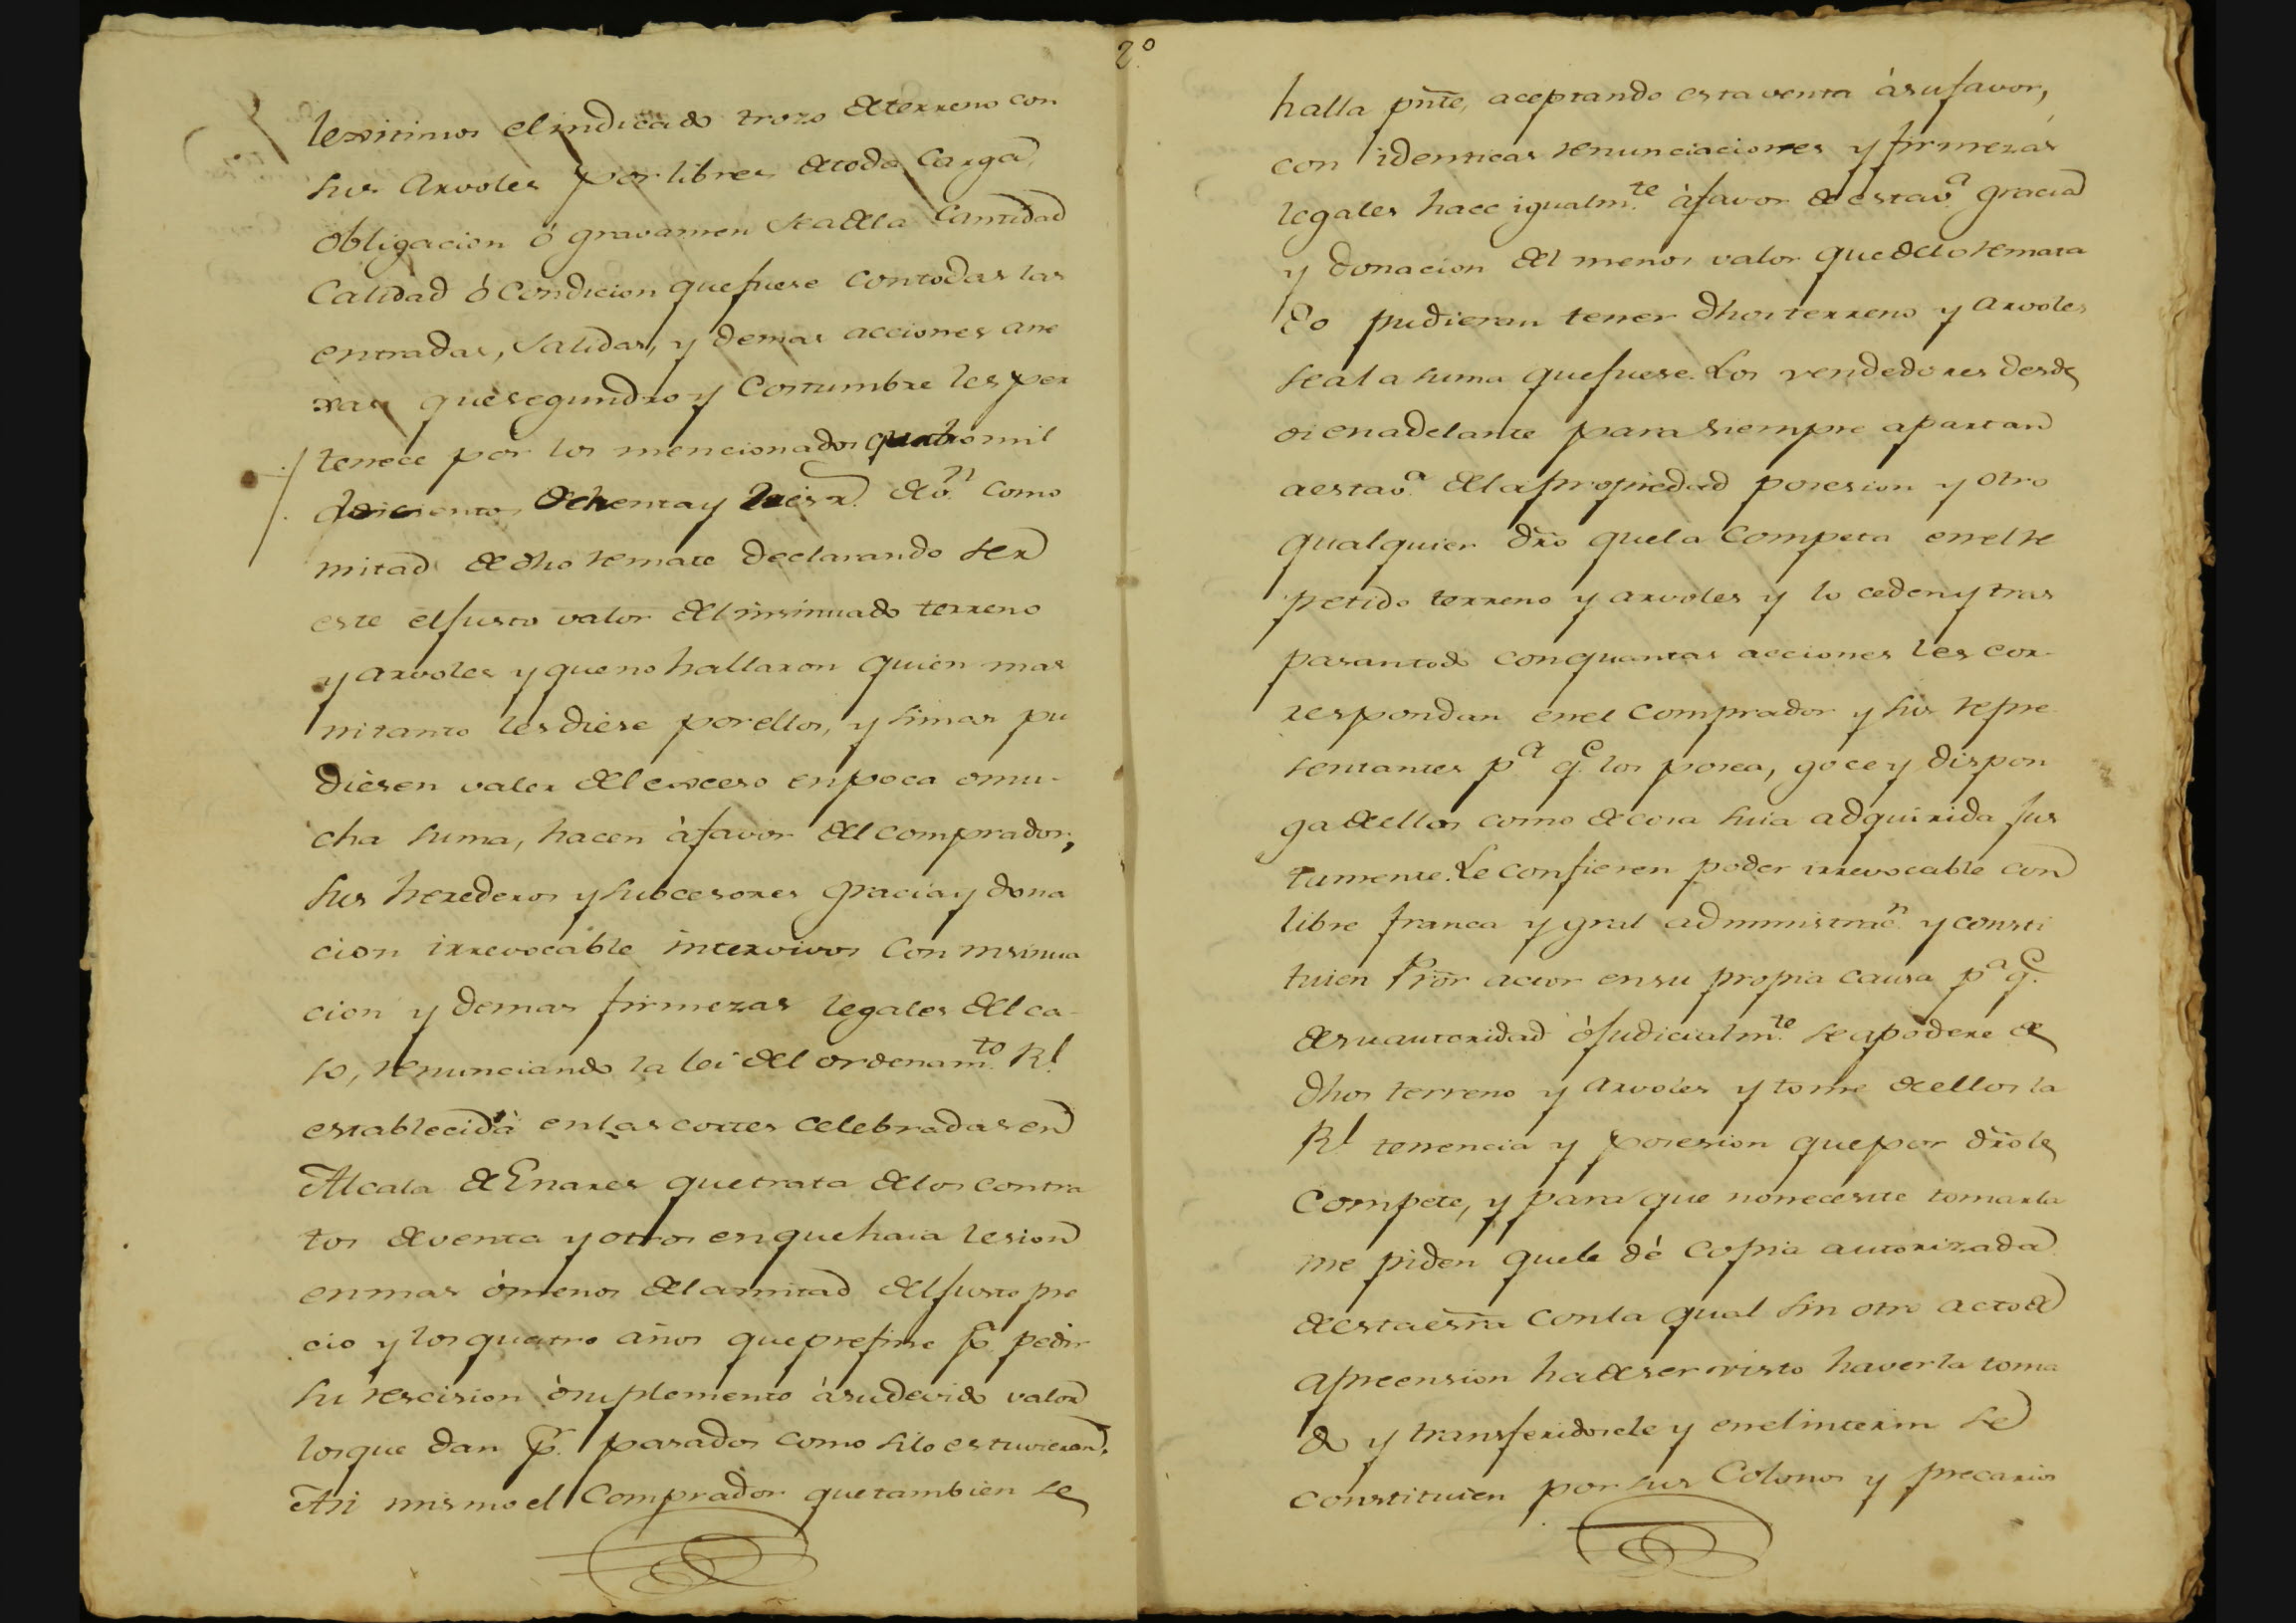 2º
lexitimos el indicado trozo de terreno con
sus Arvoles por libres de toda Carga,
obligacion ó gravamen sea de la Cantidad
Calidad ó Condicion que fuese con todas las
entradas, salidas, y demas acciones ane
xas que segun dro y Costumbre les per
tenece por los mencionados quatro mil
doscientos ochenta y tres rs. de vn. como
mitad de dho remate declarando ser
este el justo valor del insinuado terreno
y arvoles y que no hallaron quien mas
ni tanto les diese por ellos, y si mas pu
diesen valer del exceso en poca o mu-
cha suma, hacen à favor del comprador,
sus herederos y subcesores gracia y dona
cion irrevocable intervivos con insinua
cion y demas firmezas legales del ca-
so, renunciando la lei del ordenamto. Rl.
establecida en las cortes celebradas en
Alcala de Enares que trata de los contra
tos de venta y otros en que haia lesion
en mas ó menos de la mitad del justo pre
cio y los quatro años que prefine pa. pedir
su rescision ò suplemento à su devido valor
los que dan pr. pasados como si lo estuvieran.
Asi mismo el Comprador que tambien se
halla pnte, aceptando esta venta à su favor,
con identicas renunciaciones y firmezas
legales hace igualmte. à favor de esta va. gracia
y donacion del menos valor que de lo remata
do pudieran tener dhos terreno y arvoles
sea la suma que fuese. Los vendedores desde
oi en adelante para siempre apartan
a esta va. de la propiedad posesion y otro
qualquier dro que la Competa en el re
petido terreno y arvoles y lo ceden y tras
pasan todo con quantas acciones les cor-
respondan en el comprador y sus repre
sentantes pa. qe. los posea, goce y dispon
ga de ellos como de cosa suia adquirida jus
tamente. Le confieren poder irrevocable con
libre franca y gral administracn. y consti
tuien Pror actor en su propia causa pa. qe.
de su autoridad ó judicialmte. se apodere de
dhos terreno y arvoles y tome de ellos la
Rl. tenencia y posesion que por dro le
Compete, y para que no necesite tomarla
me piden que le dé copia autorizada
de esta esra con la qual sin otro acto de
apreension ha de ser visto haverla toma
do y transferidosele y en el interin se
constituien por sus Colonos y precarios